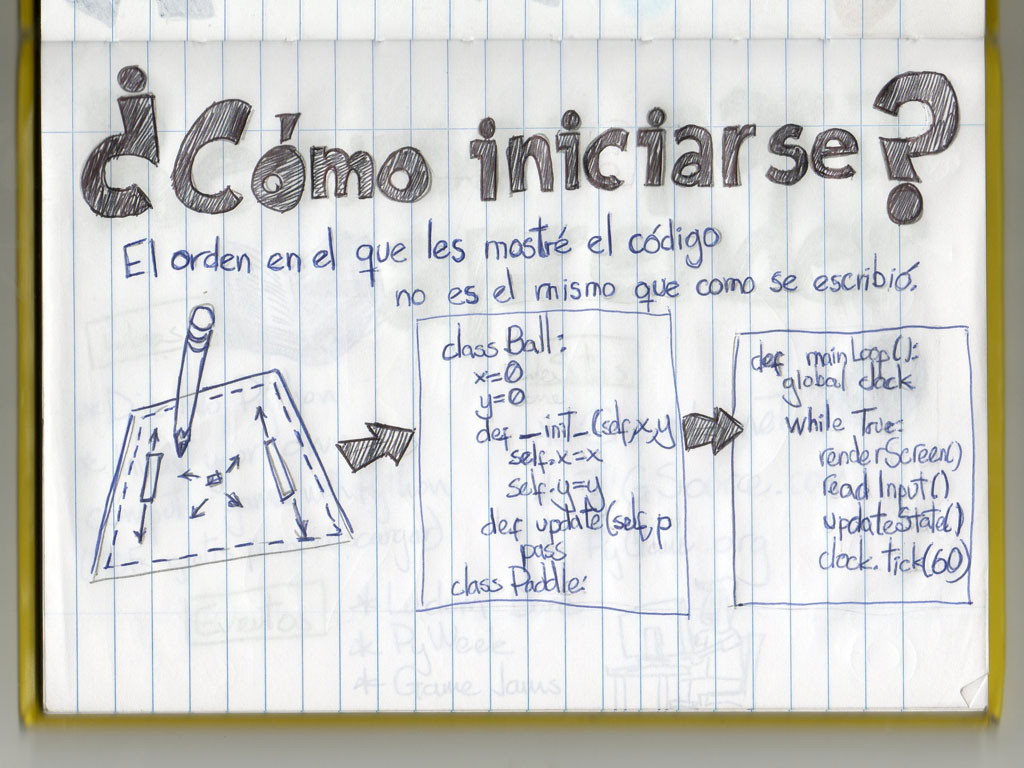 ¿Cómo iniciarse?
El orden en el que les mostré el código
no es el mismo que como se escribió.
class Ball:
x=0
y=0
def _init_(self,x,y
self.x=x
self.y=y
def update(self,p
pass
class Paddle:
def mainLoop():
global clock
while True:
renderScreen()
readInput()
updateState()
clock.tick(60)
Eventos
* PyWeek
* Game Jams